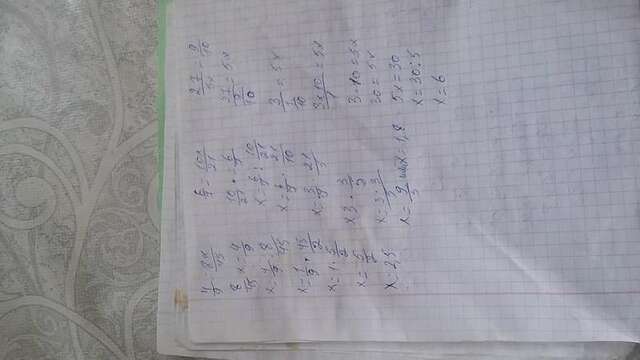 4/9 = 8x/45
8/45 x = 4/9
x = 4/9 : 8/45
x = 1/9 · 45/2
x = 1 · 5/2
x = 5/2
x = 2,5
6/7 = 10x/21
10/21 · = 6/7
x = 6/7 : 10/21
x = 6/7 · 21/10
x = 3/7 · 21/5
x 3 · 3/5
x = 3 · 3/5
x = 9/5 или x = 1,8
27/5x = 9/10
= 5x
3/1/10 = 5x
3 x 10/1 = 5x
3 · 10 = 5x
30 = 5x
5x = 30
x = 30 : 5
x = 6